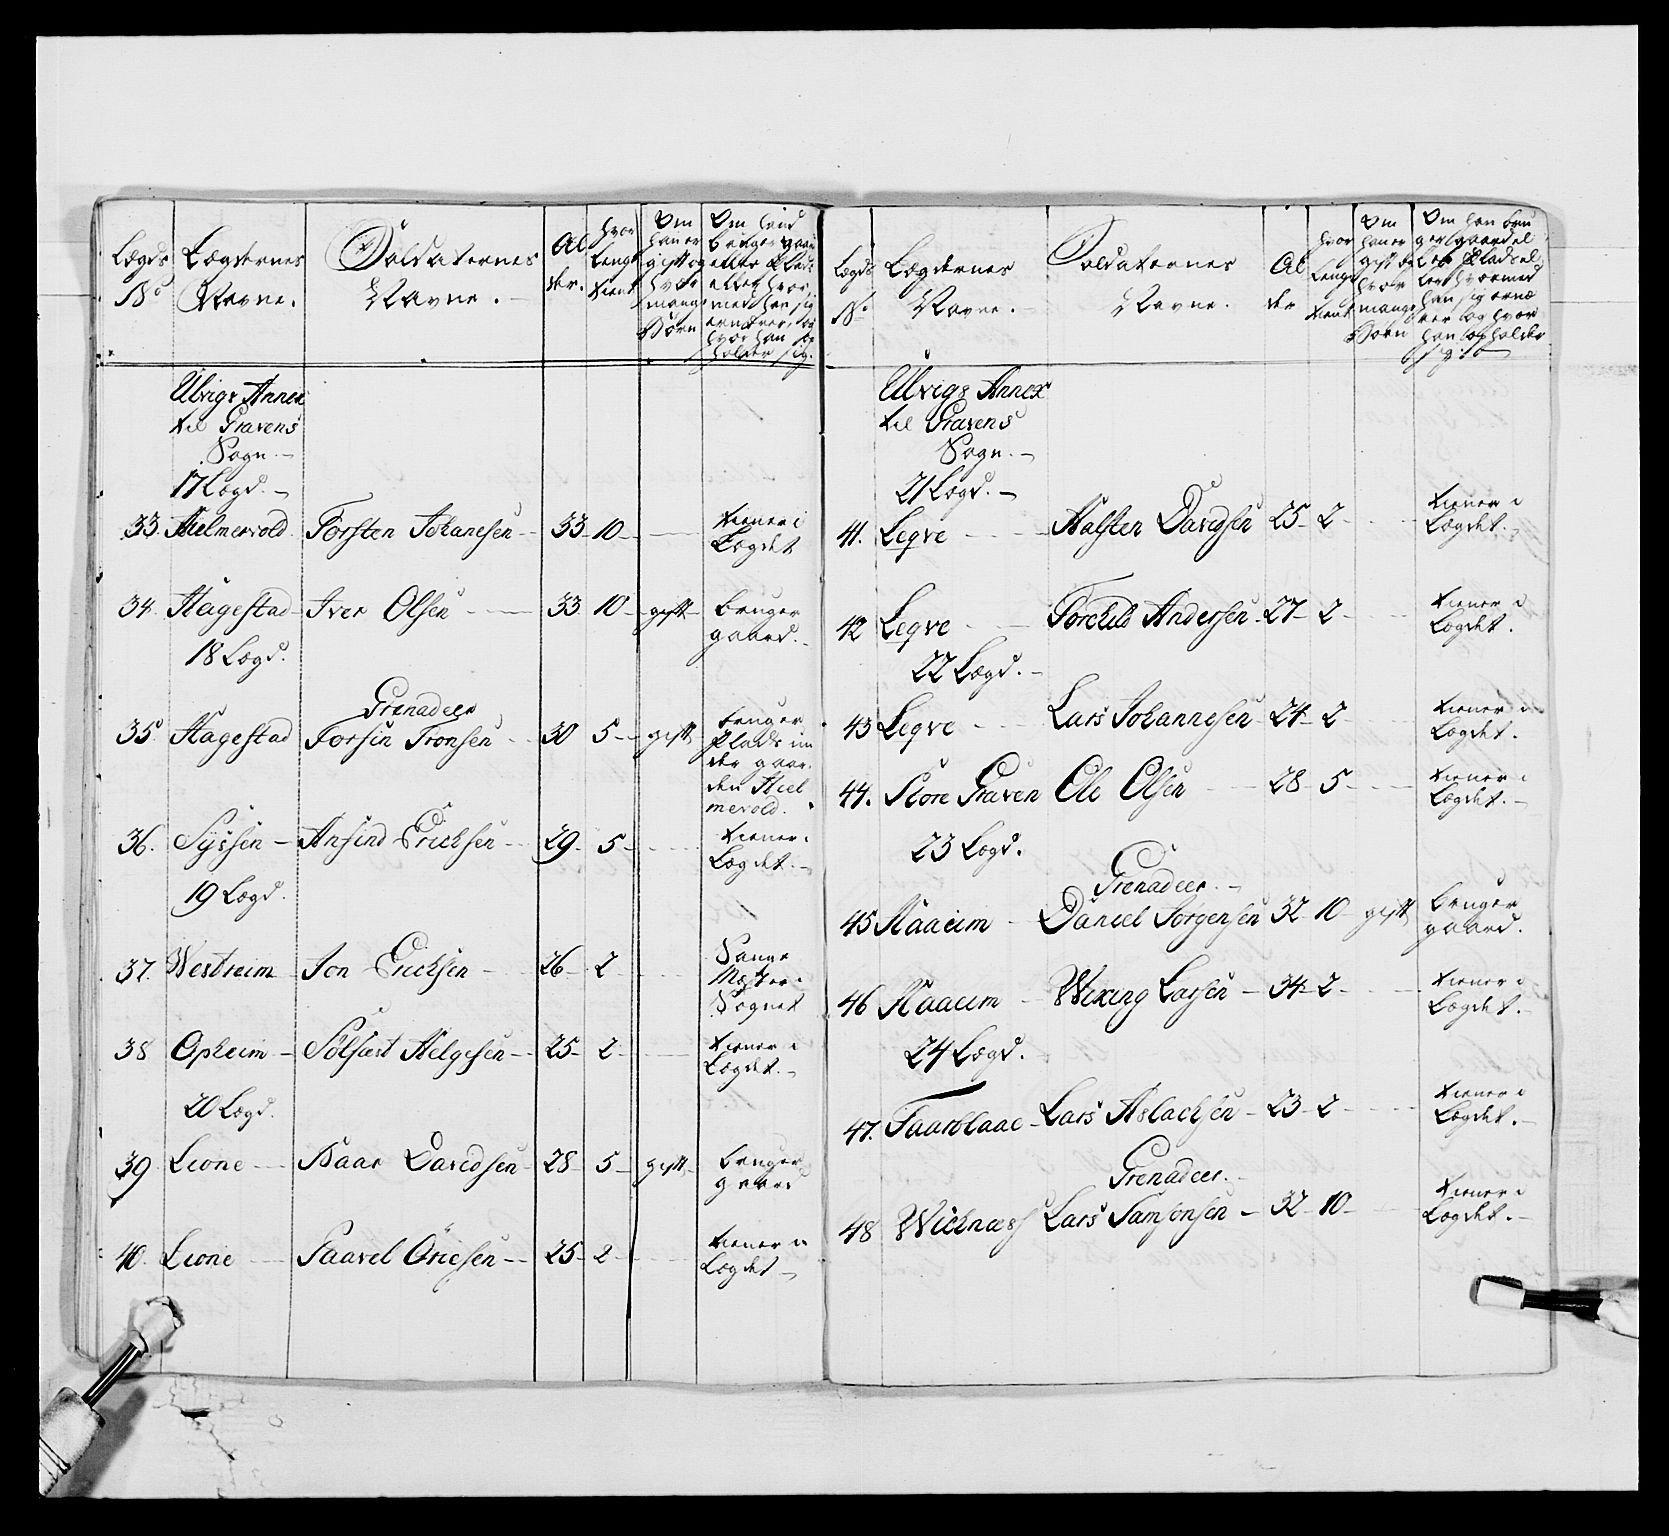 Lægds No
Lægdernes Navne.
Soldaternes Navne.
Alder.
hvor lenge tient
Om han er gift og hvor mange Børn
Om hand bruger gaard eller Plads eller hvormed han sig ernærer, og hvor han opholder sig.
Ulvigs Annex
til Gravens
Sogn.
17 Lægd.
33. Hielmervold Torsten Johanesen 33 10 tiener i Lægdet
34. Hagestad Iver Olsen 33 10 gift bruger gaard.
18 Lægd.
Grenadeer
35. Hagestad Torsin Tronsen 30 5 gift bruger Plads under gaarden Hielmerold.
36. Syssen Ansind Ericksen 29 5 tiener i Lægdet.
19 Lægd.
37. Westreim Jon Ericksen 26 2 Sange Mæster i Sognet
38 Opheim Sölfæst Helgesen 25 2 tiener i Lægdet.
20 Lægd.
39 Lione Baar Davidsen 28 5 gift bruger gaard
40. Lione Paavel Oriesen 25 2 tiener i Lægdet
Lægds No
Lægdernes Navne.
Soldaternes Navne.
Alder
hvor lenge tient
Om han er gift og hvor mange Børn
Om han bruger gaard eller Plads eller hvormed han sig ernærer og hvor han opholder sig
Ulvigs Annex
til Gravens
Sogn.
21 Lægd.
41. Leqve Halsten Davidsen 25 2 tiener i Lægdet.
42 Leqve Torchild Andersen 27 2 tiener i Lægdet.
22 Lægd.
43 Leqve Lars Johannesen 24 2 tiener i Lægdet.
44. Store Graven Ole Olsen 28 5 tiener i Lægdet.
23 Lægd.
Grenadeer.
45 Haaeim Daniel Jorgensen 32 10 gift bruger gaard.
46 Haaeim Wixing Larsen 34 2 tiener i Lægdet.
24 Lægd.
47. Taarblaae Lars Aslachsen 23 2 tiener i Lægdet.
Grenadeer.
48 Wichnæss Lars Samsonsen 32 10 tiener i Lægdet.